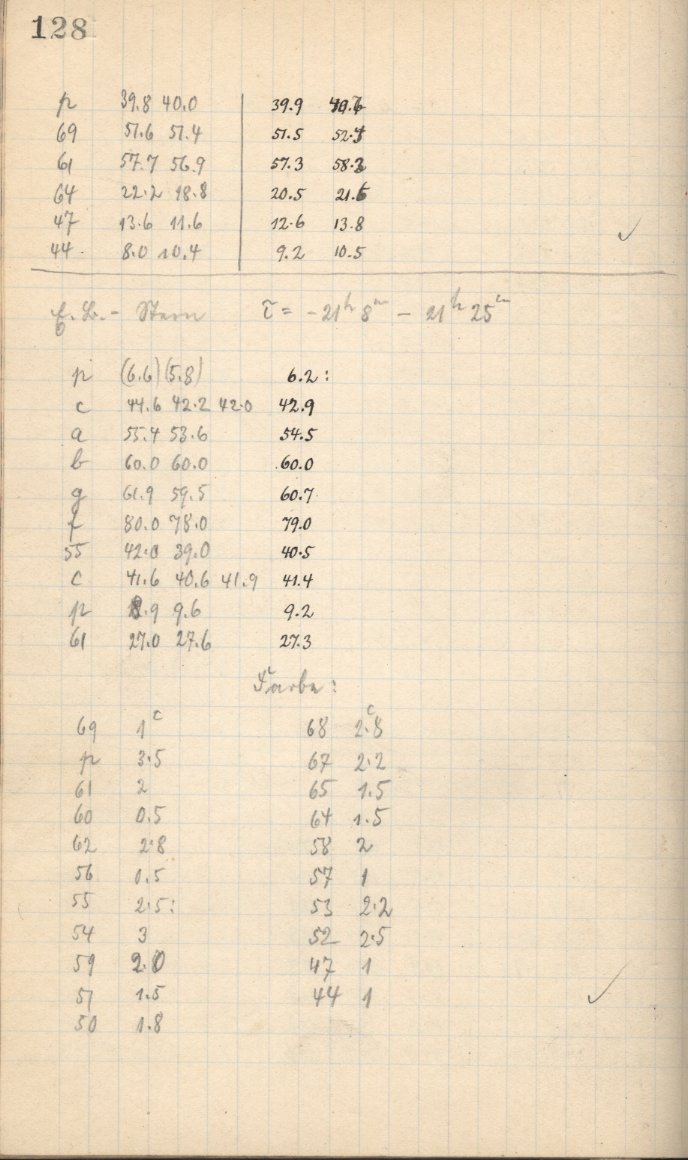 128
p 39.8 40.0 39.9
69 51.6 51.4 51.5
61 57.7 56.9 57.3
64 22.2 18.8 20.5
47 13.6 11.6 12.6 13.8
44 8.0 10.4 9.2 10.5
Stern τ = -21ʰ 8ᵐ - 21ʰ 25ᵐ
p (6.6) (5.8) 6.2:
c 44.6 42.2 42.0 42.9
a 55.4 53.6 54.5
b 60.0 60.0 60.0
g 61.9 59.5 60.7
f 80.0 78.0 79.0
55 42.0 39.0 40.5
c 41.6 40.6 41.9 41.4
p 8.9 9.6 9.2
61 27.0 27.6 27.3
Farbe:
69 1ᶜ 68 2.8ᶜ
p 3.5 67 2.2
61 2 65 1.5
60 0.5 64 1.5
62 2.8 58 2
56 0.5 57 1
55 2.5: 53 2.2
54 3 52 2.5
59 2.0 47 1
51 1.5 44 1
50 1.8